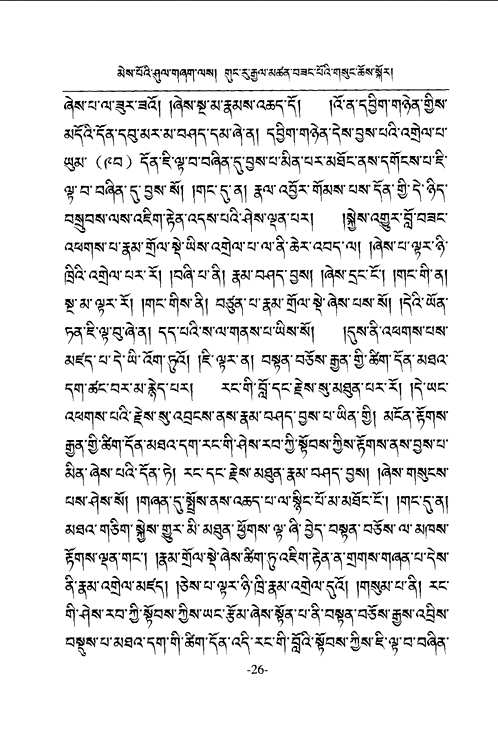 མེས་པོའི་ཤུལ་གཞག་ལས། གུང་རུ་རྒྱལ་མཚན་བཟང་པོའི་གསུང་ཆོས་སྐོར།
ཞེས་པ་ལ་ཟུར་ཟའོ། །ཞེས་སྔ་མ་རྣམས་འཆད་དོ། །འོ་ན་དབྱིག་གཉེན་གྱིས་
མདོའི་དོན་དབུ་མར་མ་བཤད་དམ་ཞེ་ན། དབྱིག་གཉེན་དེས་བྱས་པའི་འགྲེལ་པ་
ཡུམ་ (༩བ) དོན་ཇི་ལྟ་བ་བཞིན་དུ་བྱས་པ་མིན་པར་མཐོང་ནས་དགོངས་པ་ཇི་
ལྟ་བ་བཞིན་དུ་བྱས་སོ། །གང་དུ་ན། རྣལ་འབྱོར་གོམས་པས་དོན་གྱི་དེ་ཉིད་
བསྒྲུབས་ལས་འཇིག་རྟེན་འདས་པའི་ཤེས་ལྡན་པར། །སྐྱེས་འགྱུར་བློ་བཟང་
འཕགས་པ་རྣམ་གྲོལ་སྡེ་ཡིས་འགྲེལ་པ་ལ་ནི་ཆེར་འབད་ལ། །ཞེས་པ་ལྟར་ཉི་
ཁྲིའི་འགྲེལ་པར་རོ། །བཞི་པ་ནི། རྣམ་བཤད་བྱས། །ཞེས་དྲང་ངོ་། །གང་གི་ན།
སྔ་མ་ལྟར་རོ། །གང་གིས་ནི། བཙུན་པ་རྣམ་གྲོལ་སྡེ་ཞེས་པས་སོ། །དེའི་ཡོན་
ཏན་ཇི་ལྟ་བུ་ཞེ་ན། དད་པའི་ས་ལ་གནས་པ་ཡིས་སོ། །དུས་ནི་འཕགས་པས་
མཛད་པ་དེ་ཡི་འོག་ཏུའོ། །ཇི་ལྟར་ན། བསྟན་བཅོས་རྒྱན་གྱི་ཚིག་དོན་མཐའ་
དག་ཚང་བར་མ་རྙེད་པར། རང་གི་བློ་དང་རྗེས་སུ་མཐུན་པར་རོ། །དེ་ཡང་
འཕགས་པའི་རྗེས་སུ་འབྲངས་ནས་རྣམ་བཤད་བྱས་པ་ཡིན་གྱི། མངོན་རྟོགས་
རྒྱན་གྱི་ཚིག་དོན་མཐའ་དག་རང་གི་ཤེས་རབ་ཀྱི་སྟོབས་ཀྱིས་རྟོགས་ནས་བྱས་པ་
མིན་ཞེས་པའི་དོན་ཏེ། རང་དང་རྗེས་མཐུན་རྣམ་བཤད་བྱས། །ཞེས་གསུངས་
པས་ཤེས་སོ། །གཞན་དུ་སྤྲོས་ནས་འཆད་པ་ལ་སྙིང་པོ་མ་མཐོང་ངོ་། །གང་དུ་ན།
མཐའ་གཅིག་སྐྱེས་གྱུར་མི་མཐུན་ཕྱོགས་ལྟ་ཞི་བྱེད་བསྟན་བཅོས་ལ་མཁས་
རྟོགས་ལྡན་གང་། །རྣམ་གྲོལ་སྡེ་ཞེས་ཚིག་ཏུ་འཇིག་རྟེན་ན་གྲགས་གཞན་པ་དེས་
ནི་རྣམ་འགྲེལ་མཛད། །ཅེས་པ་ལྟར་ཉི་ཁྲི་རྣམ་འགྲེལ་དུའོ། །གསུམ་པ་ནི། རང་
གི་ཤེས་རབ་ཀྱི་སྟོབས་ཀྱིས་ཡང་རྩོམ་ཞེས་སྟོན་པ་ནི་བསྟན་བཅོས་རྒྱས་འབྲིས་
བསྡུས་པ་མཐའ་དག་གི་ཚིག་དོན་འདི་རང་གི་བློའི་སྟོབས་ཀྱིས་ཇི་ལྟ་བ་བཞིན་
-26-